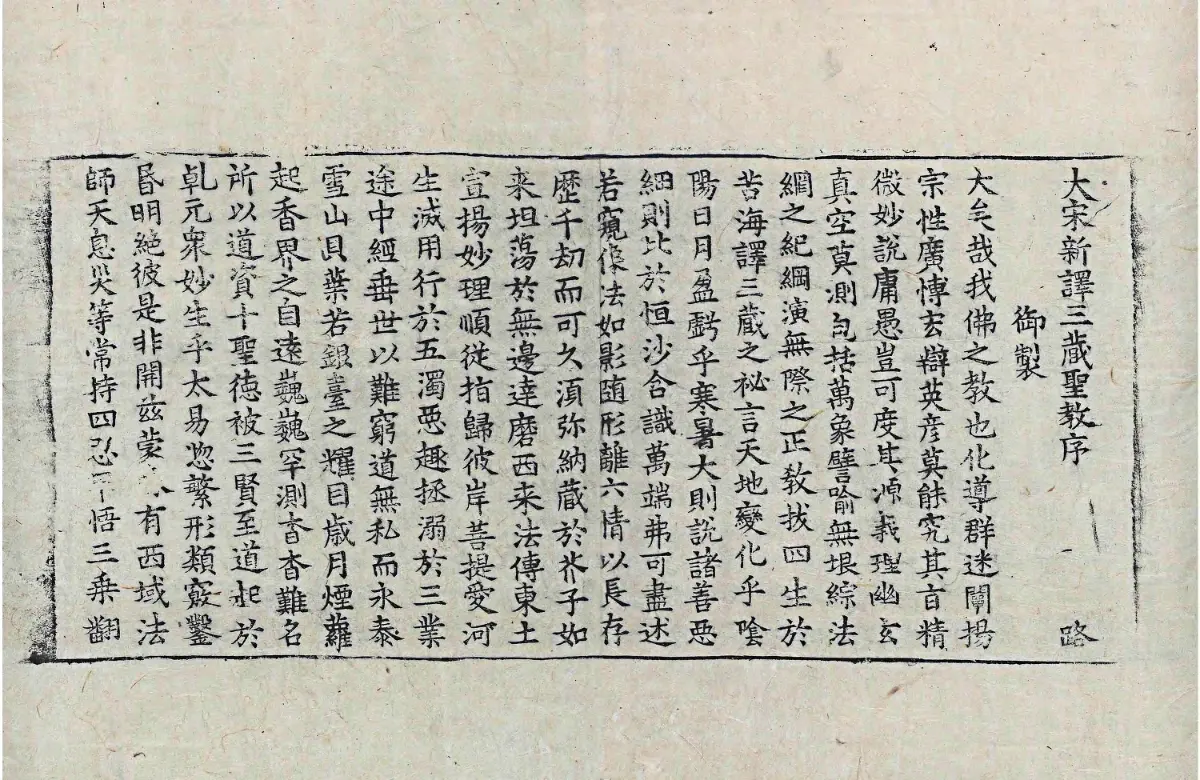 大宋新譯三藏聖教序　路
御製
大矣哉我佛之教也化導群迷闡揚
宗性廣博玄辯英彦莫能究其旨精
微妙說庸愚豈可度其源義理幽玄
真空莫測包括萬象譬喻無垠綜法
網之紀綱演無際之正教拔四生於
苦海譯三藏之祕言天地變化乎陰
陽日月盈虧乎寒暑大則說諸善惡
細則比於恒沙含識萬端弗可盡述
若窺像法如影隨形離六情以長存
歷千劫而可久須弥納藏於芥子如
来坦蕩於無邊達磨西来法傳東土
宣揚妙理順從指歸彼岸菩提愛河
生滅用行於五濁惡趣拯溺於三業
途中經垂世以難窮道無私而永泰
雪山貝葉若銀臺之耀目歲月煙蘿
起香界之自遠巍巍罕測杳杳難名
所以道資十聖德被三賢至道起於
乹元衆妙生乎太易惣繁形類竅鑿
昏明絕彼是非開茲蒙有西域法
師天息災等常持四忍悟三乘翻